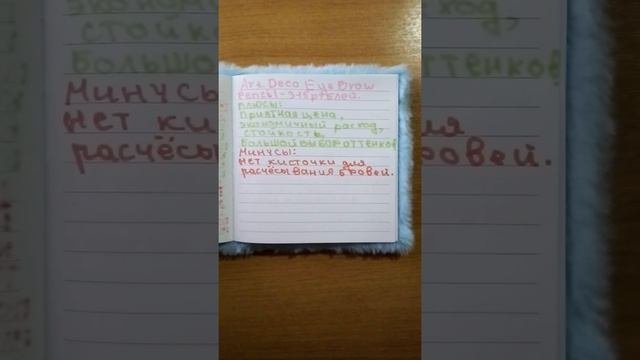 Art Deco Eye Brow
Pencsl-315рублей.
плюсы:
приятная цена,
экономичный расход,
стойкость,
большой выбор оттенков
минусы:
нет кисточки для
расчёсывания бровей.